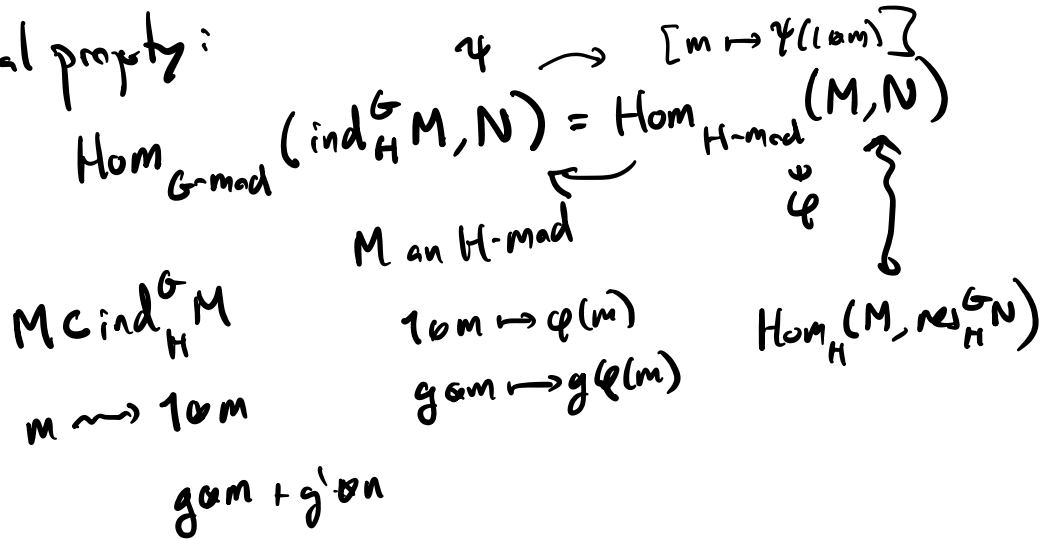 al property:
ψ [m ↦ ψ(1⊗m)]
Hom_{G-mod}(ind_H^G M, N) = Hom_{H-mod}(M, N)
φ
M an H-mod
M ⊂ ind_H^G M 1⊗m ↦ φ(m) Hom_H(M, res_H^G N)
m ⟿ 1⊗m g⊗m ↦ gφ(m)
g⊗m + g'⊗n